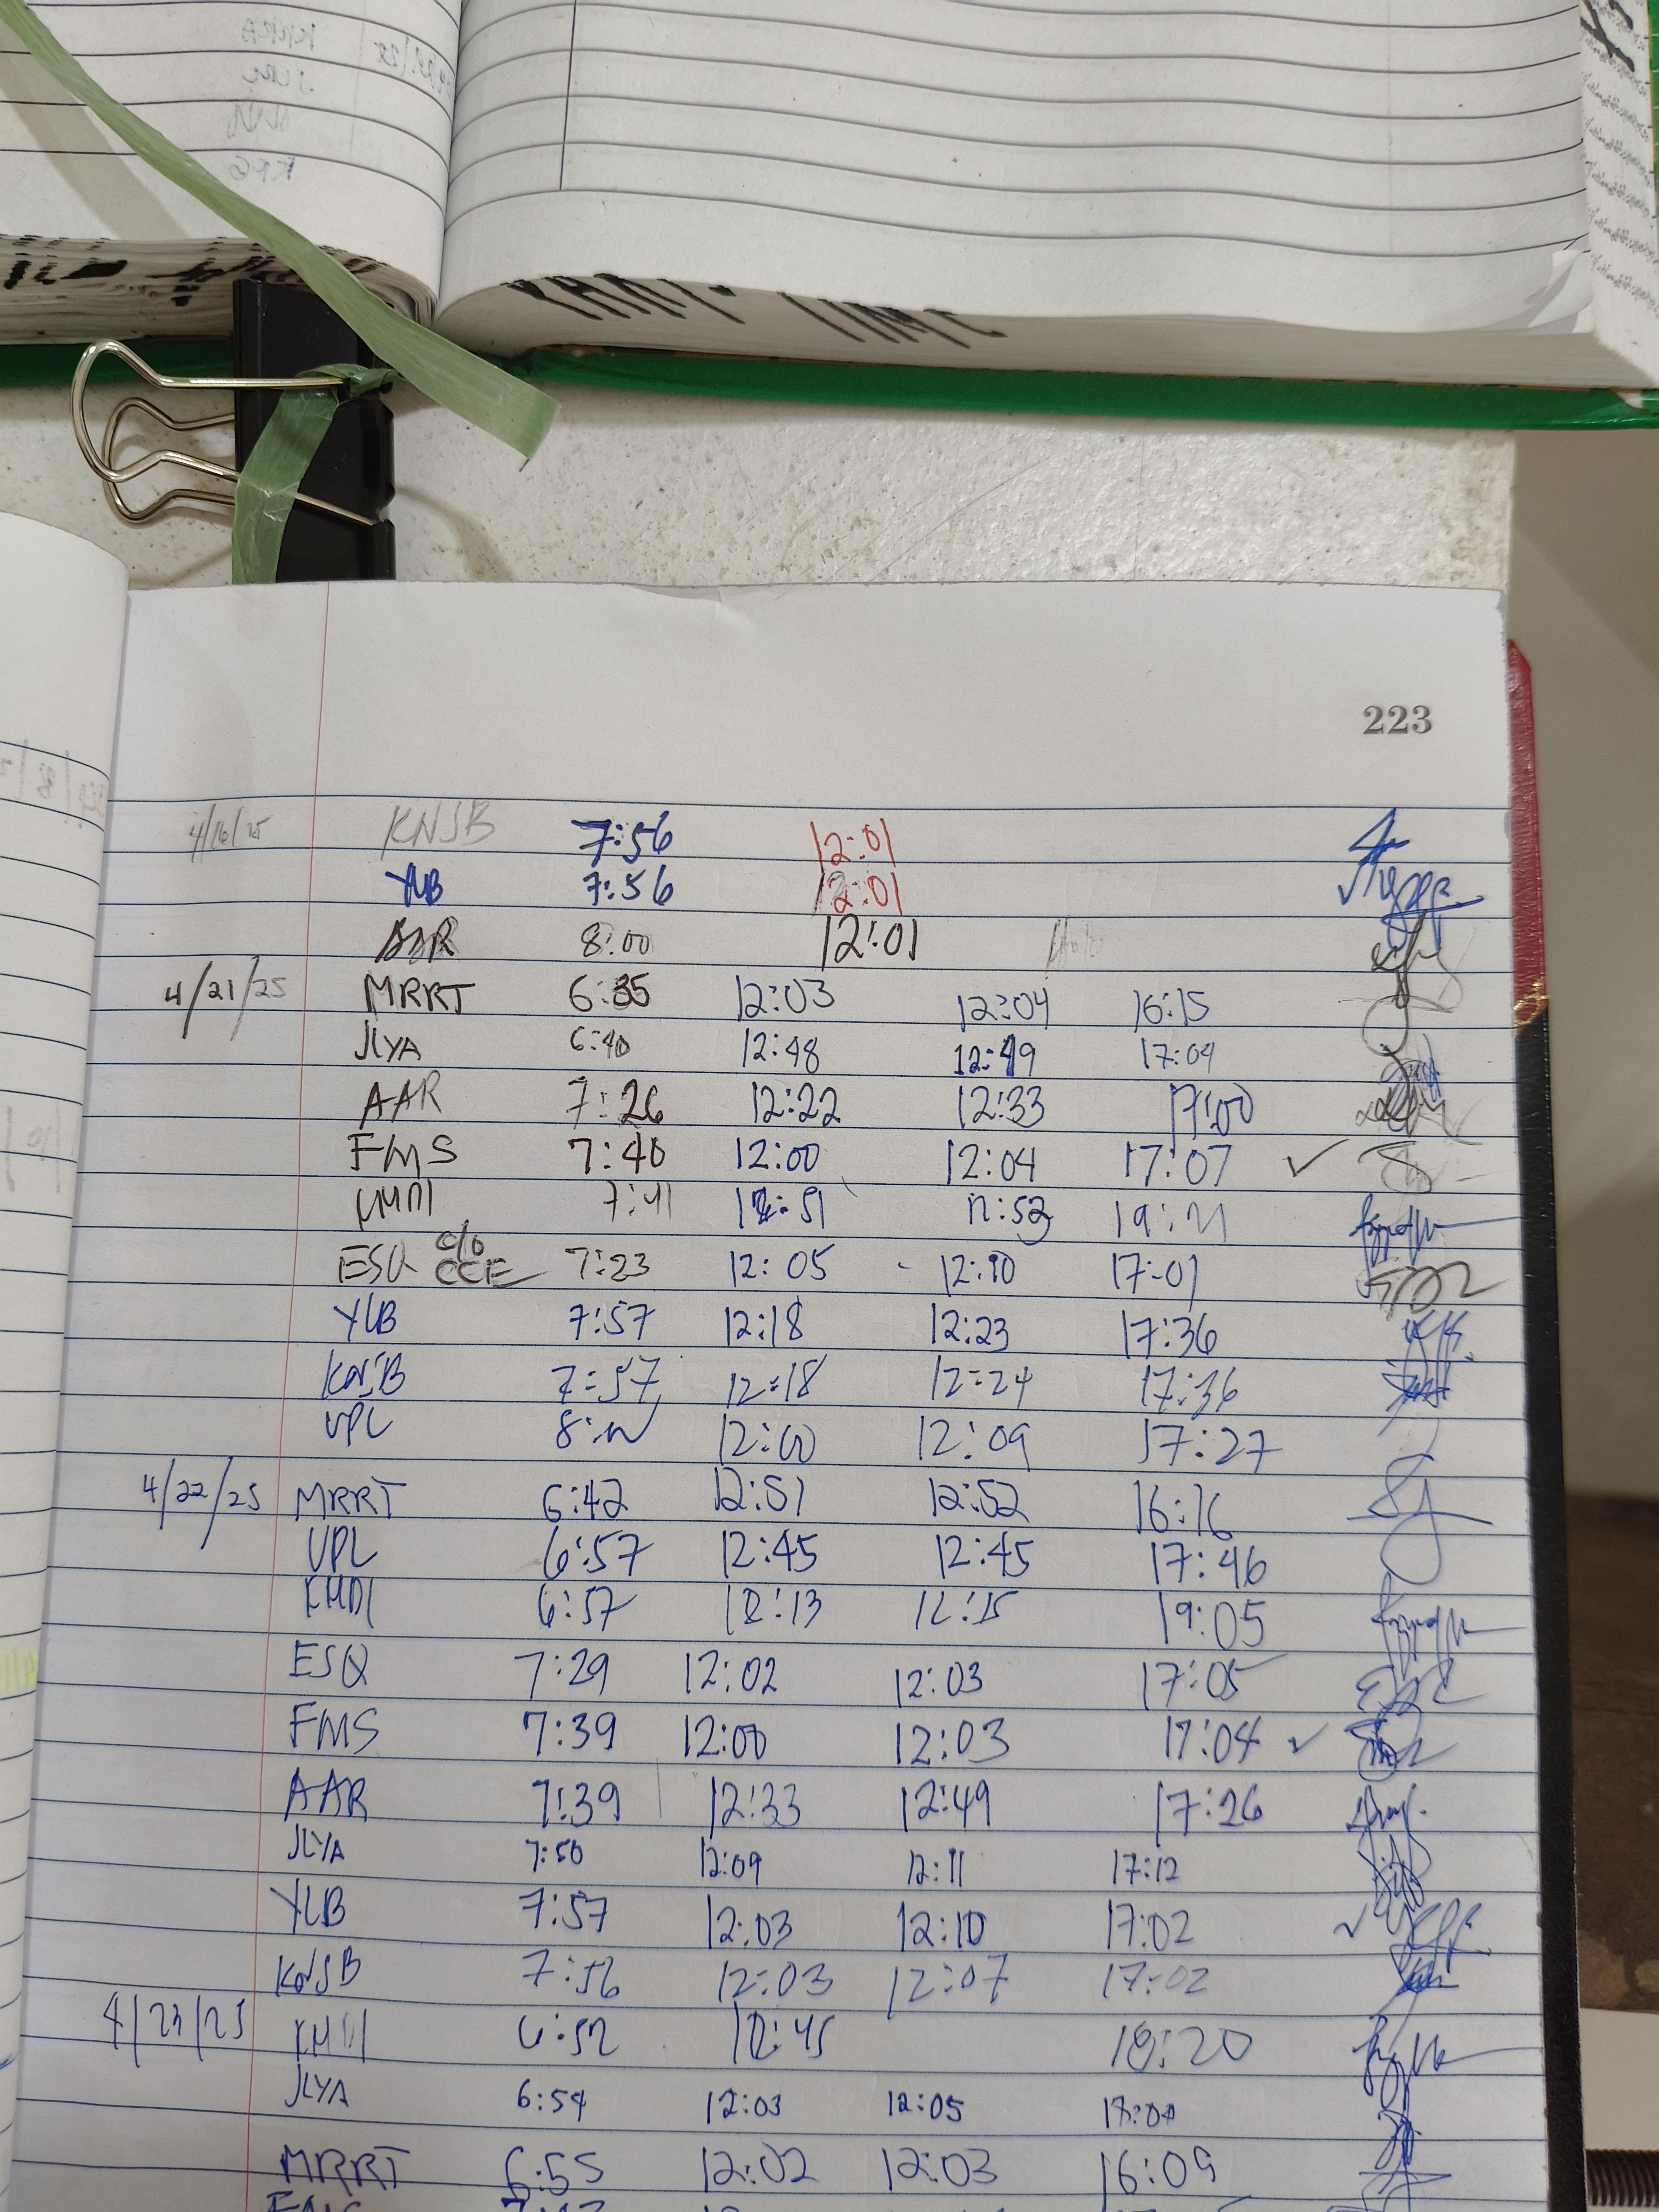 PART-TIME
223
4/16/25 KNSB 7:56 12:01
YLB 7:56 12:01
AAR 8:00 12:01
4/21/25 MRRT 6:35 12:03 12:04 16:15
JLYA 6:40 12:48 12:49 17:04
AAR 7:26 12:22 12:33 17:00
FMS 7:40 12:00 12:04 17:07 ✓
KMDI 7:41 12:51 12:52 19:21
ESQ c/o CCE 7:23 12:05 12:10 17:01
YLB 7:57 12:18 12:23 17:36
KNSB 7:57 12:18 12:24 17:36
VPL 12:00 12:09 17:27
4/22/25 MRRT 6:42 12:51 12:52 16:16
VPL 6:57 12:45 12:45 17:46
KMDI 6:57 12:13 12:15 19:05
ESQ 7:29 12:02 12:03 17:05
FMS 7:39 12:00 12:03 17:04 ✓
AAR 7:39 12:33 12:49 17:26
JLYA 7:50 12:09 12:11 17:12
YLB 7:57 12:03 12:10 17:02 ✓
KNSB 7:56 12:03 12:07 17:02
4/23/25 KMDI 6:52 12:45 18:20
JLYA 6:54 12:03 12:05 17:00
MRRT 6:55 12:02 12:03 16:09